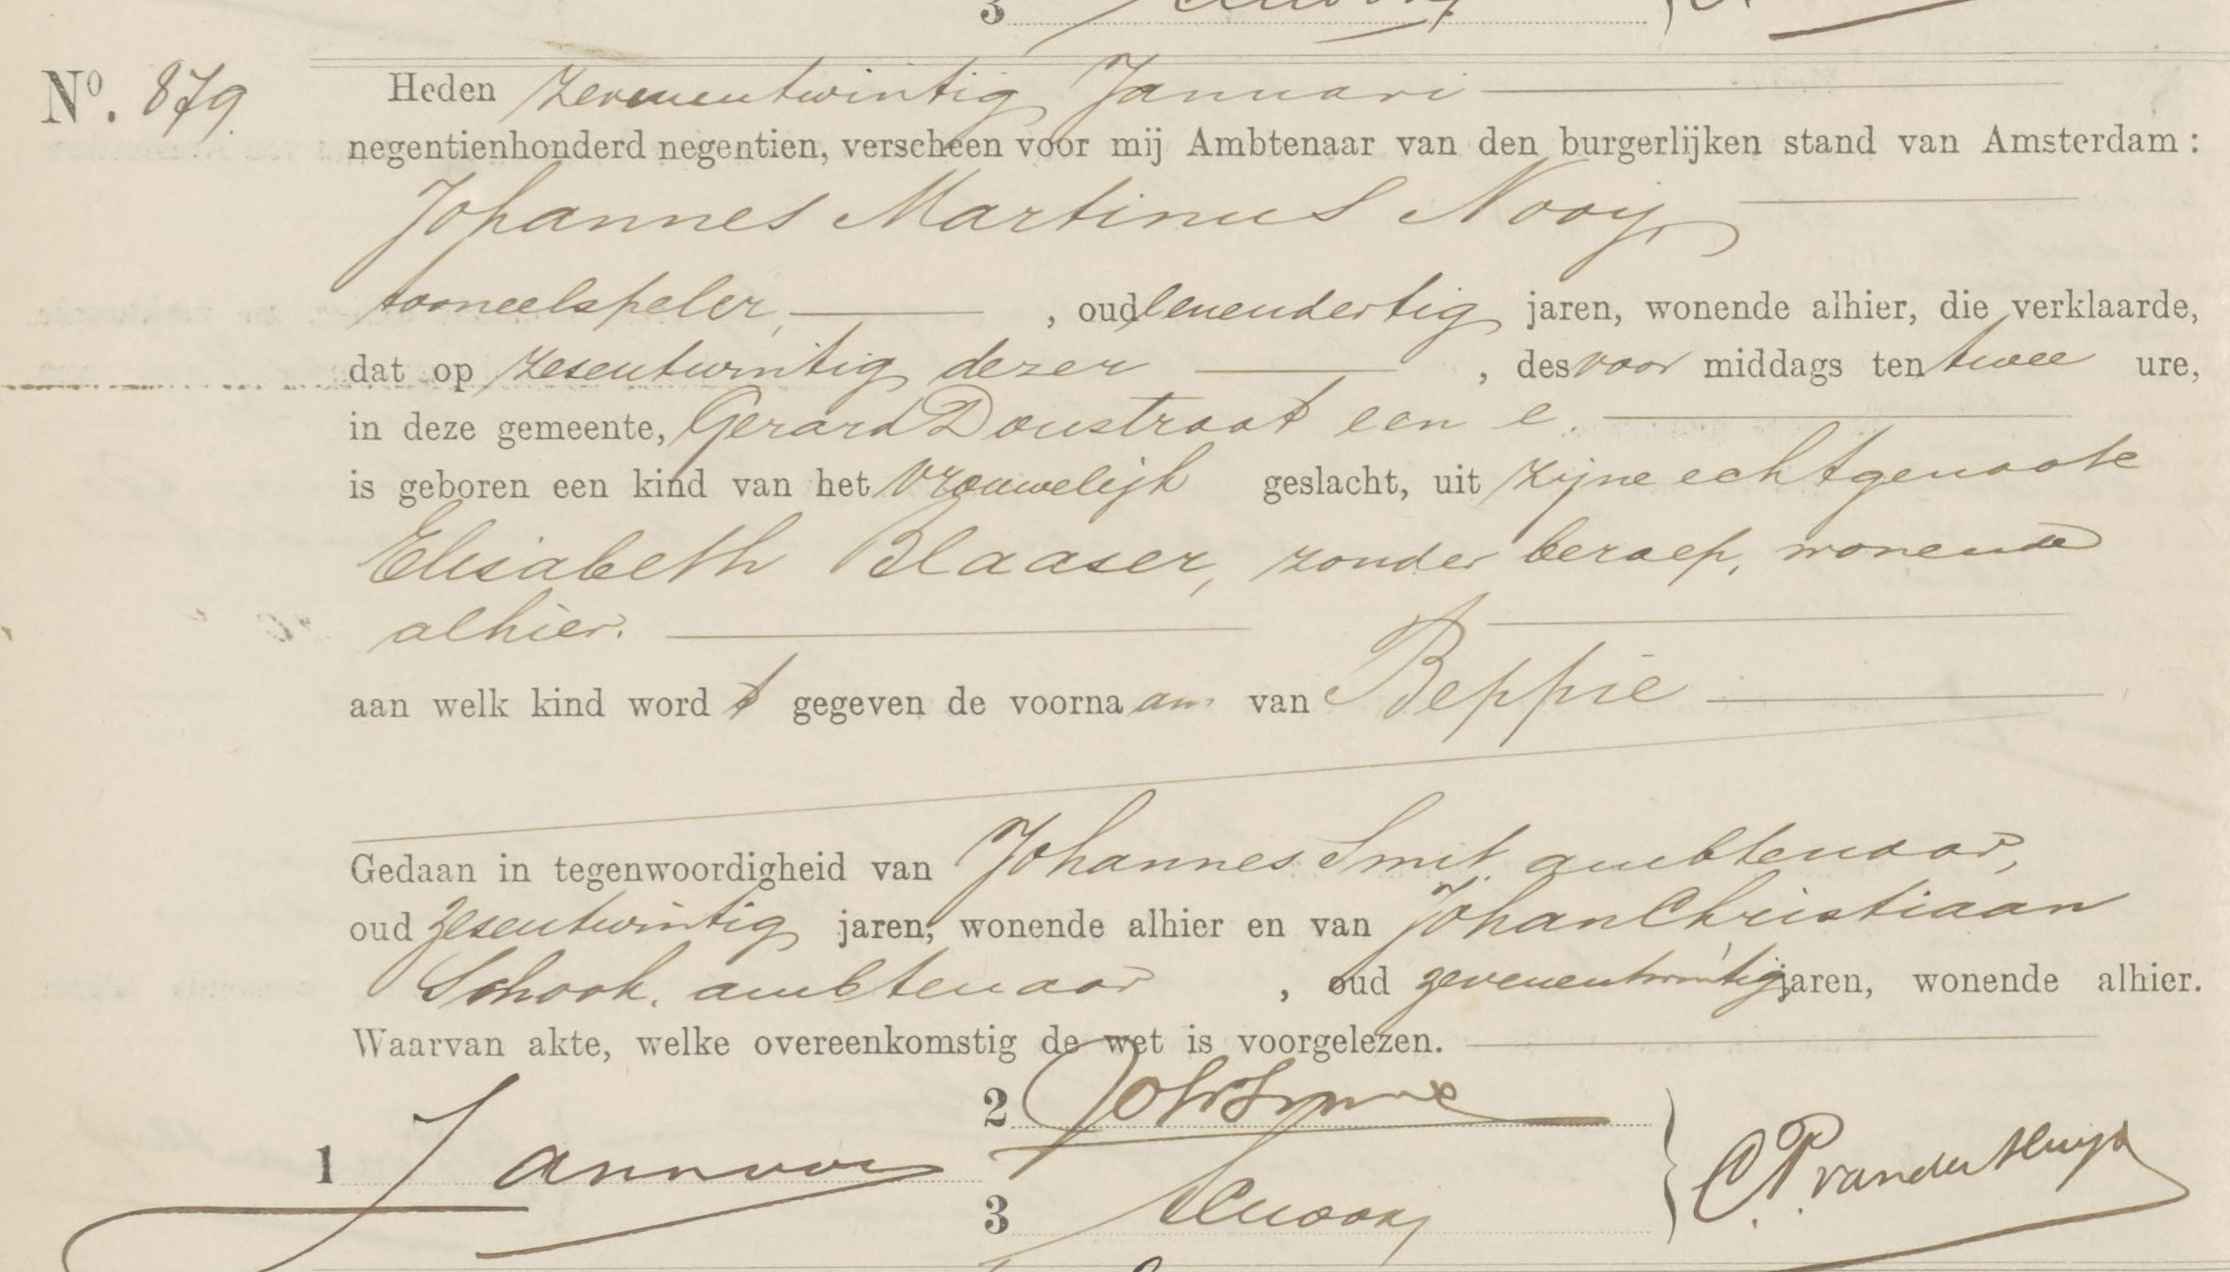 3
Nº. 879.
Heden zevenentwintig Januari
negentienhonderd negentien, verscheen voor mij Ambtenaar van den burgerlijken stand van Amsterdam:
Johannes Martinus Nooij,
tooneelspeler, , oud zevenendertig jaren, wonende alhier, die verklaarde,
dat op zesentwintig dezer , des voor middags ten twee ure,
in deze gemeente, Gerard Doustraat een e.
is geboren een kind van het vrouwelijk geslacht, uit zijne echtgenoote
Elisabeth Blaaser, zonder beroep, wonende
alhier.
aan welk kind wordt gegeven de voornaam van Beppie
Gedaan in tegenwoordigheid van Johannes Smit, ambtenaar,
oud zesentwintig jaren, wonende alhier en van Johan Christiaan
Schook, ambtenaar , oud zevenentwintig jaren, wonende alhier.
Waarvan akte, welke overeenkomstig de wet is voorgelezen.
2
1
3